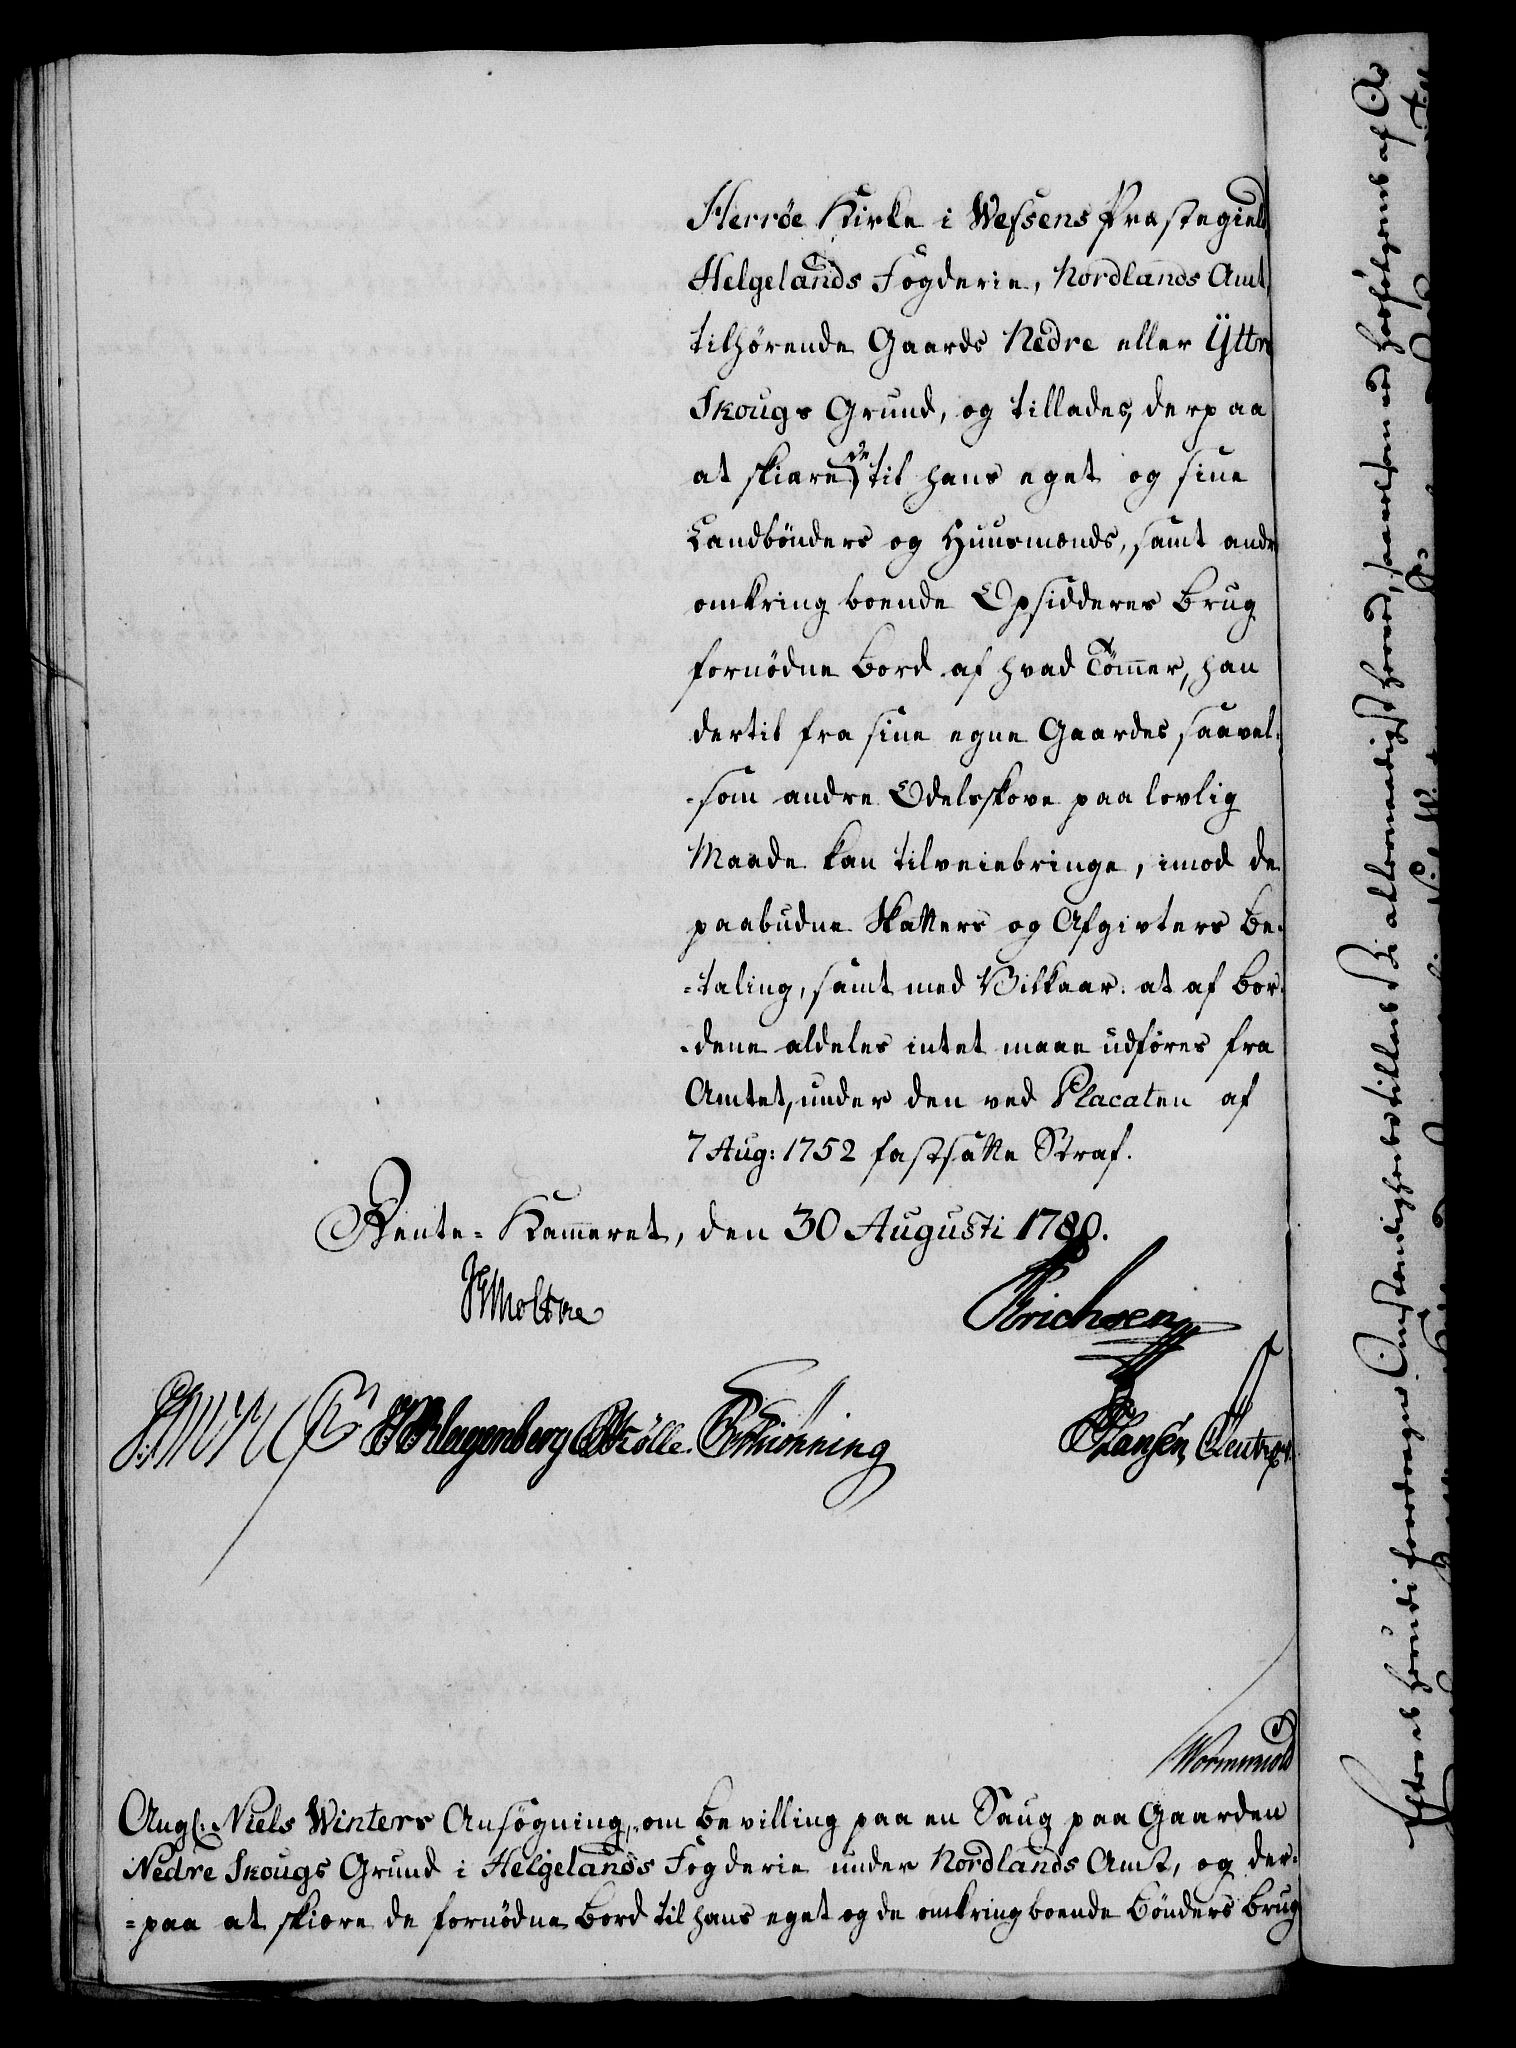 Herrøe Kirke i Wefsens Præstegield
Helgelands Fogderie, Nordlands Amt,
tilhørende Gaards Nedre eller Yttre
Skougs Grund, og tillades, derpaa
at skiære de til hans eget og sine
Landbönders og Huusmænds, samt andre
omkring boende Opsidderes Brug
fornödne Bord af hvad Tömmer, han
dertil fra sine egne Gaardes saavel-
-som andre Odelsskove paa lovlig
Maade kan tilveiebringe, imod de
paabudne Skatters og Afgivters Be-
-taling, samt med Vilkaar: at af Bor-
-dene aldeles intet maae udföres fra
Amtet, under den ved Placaten af
7 Aug: 1752 fastsatte Straf.
Rente-Kammeret, den 30 Augusti 1780.
Moltke
Erichsen
Klagenberg Kölle Schiönning
Hansen
Wormwold
Ang: Niels Winters Ansögning, om Bevilling paa en Saug paa Gaarden
Nedre Skougs Grund i Helgelands Fogderie under Nordlands Amt, og der-
=paa at skiære de fornödne Bord til hans eget og de omkringboende Bönders Brug
Efter at heri foredragne Omstændigheder tillades Vi allernaadigst herved, saavelsom ved herfölgende af Os